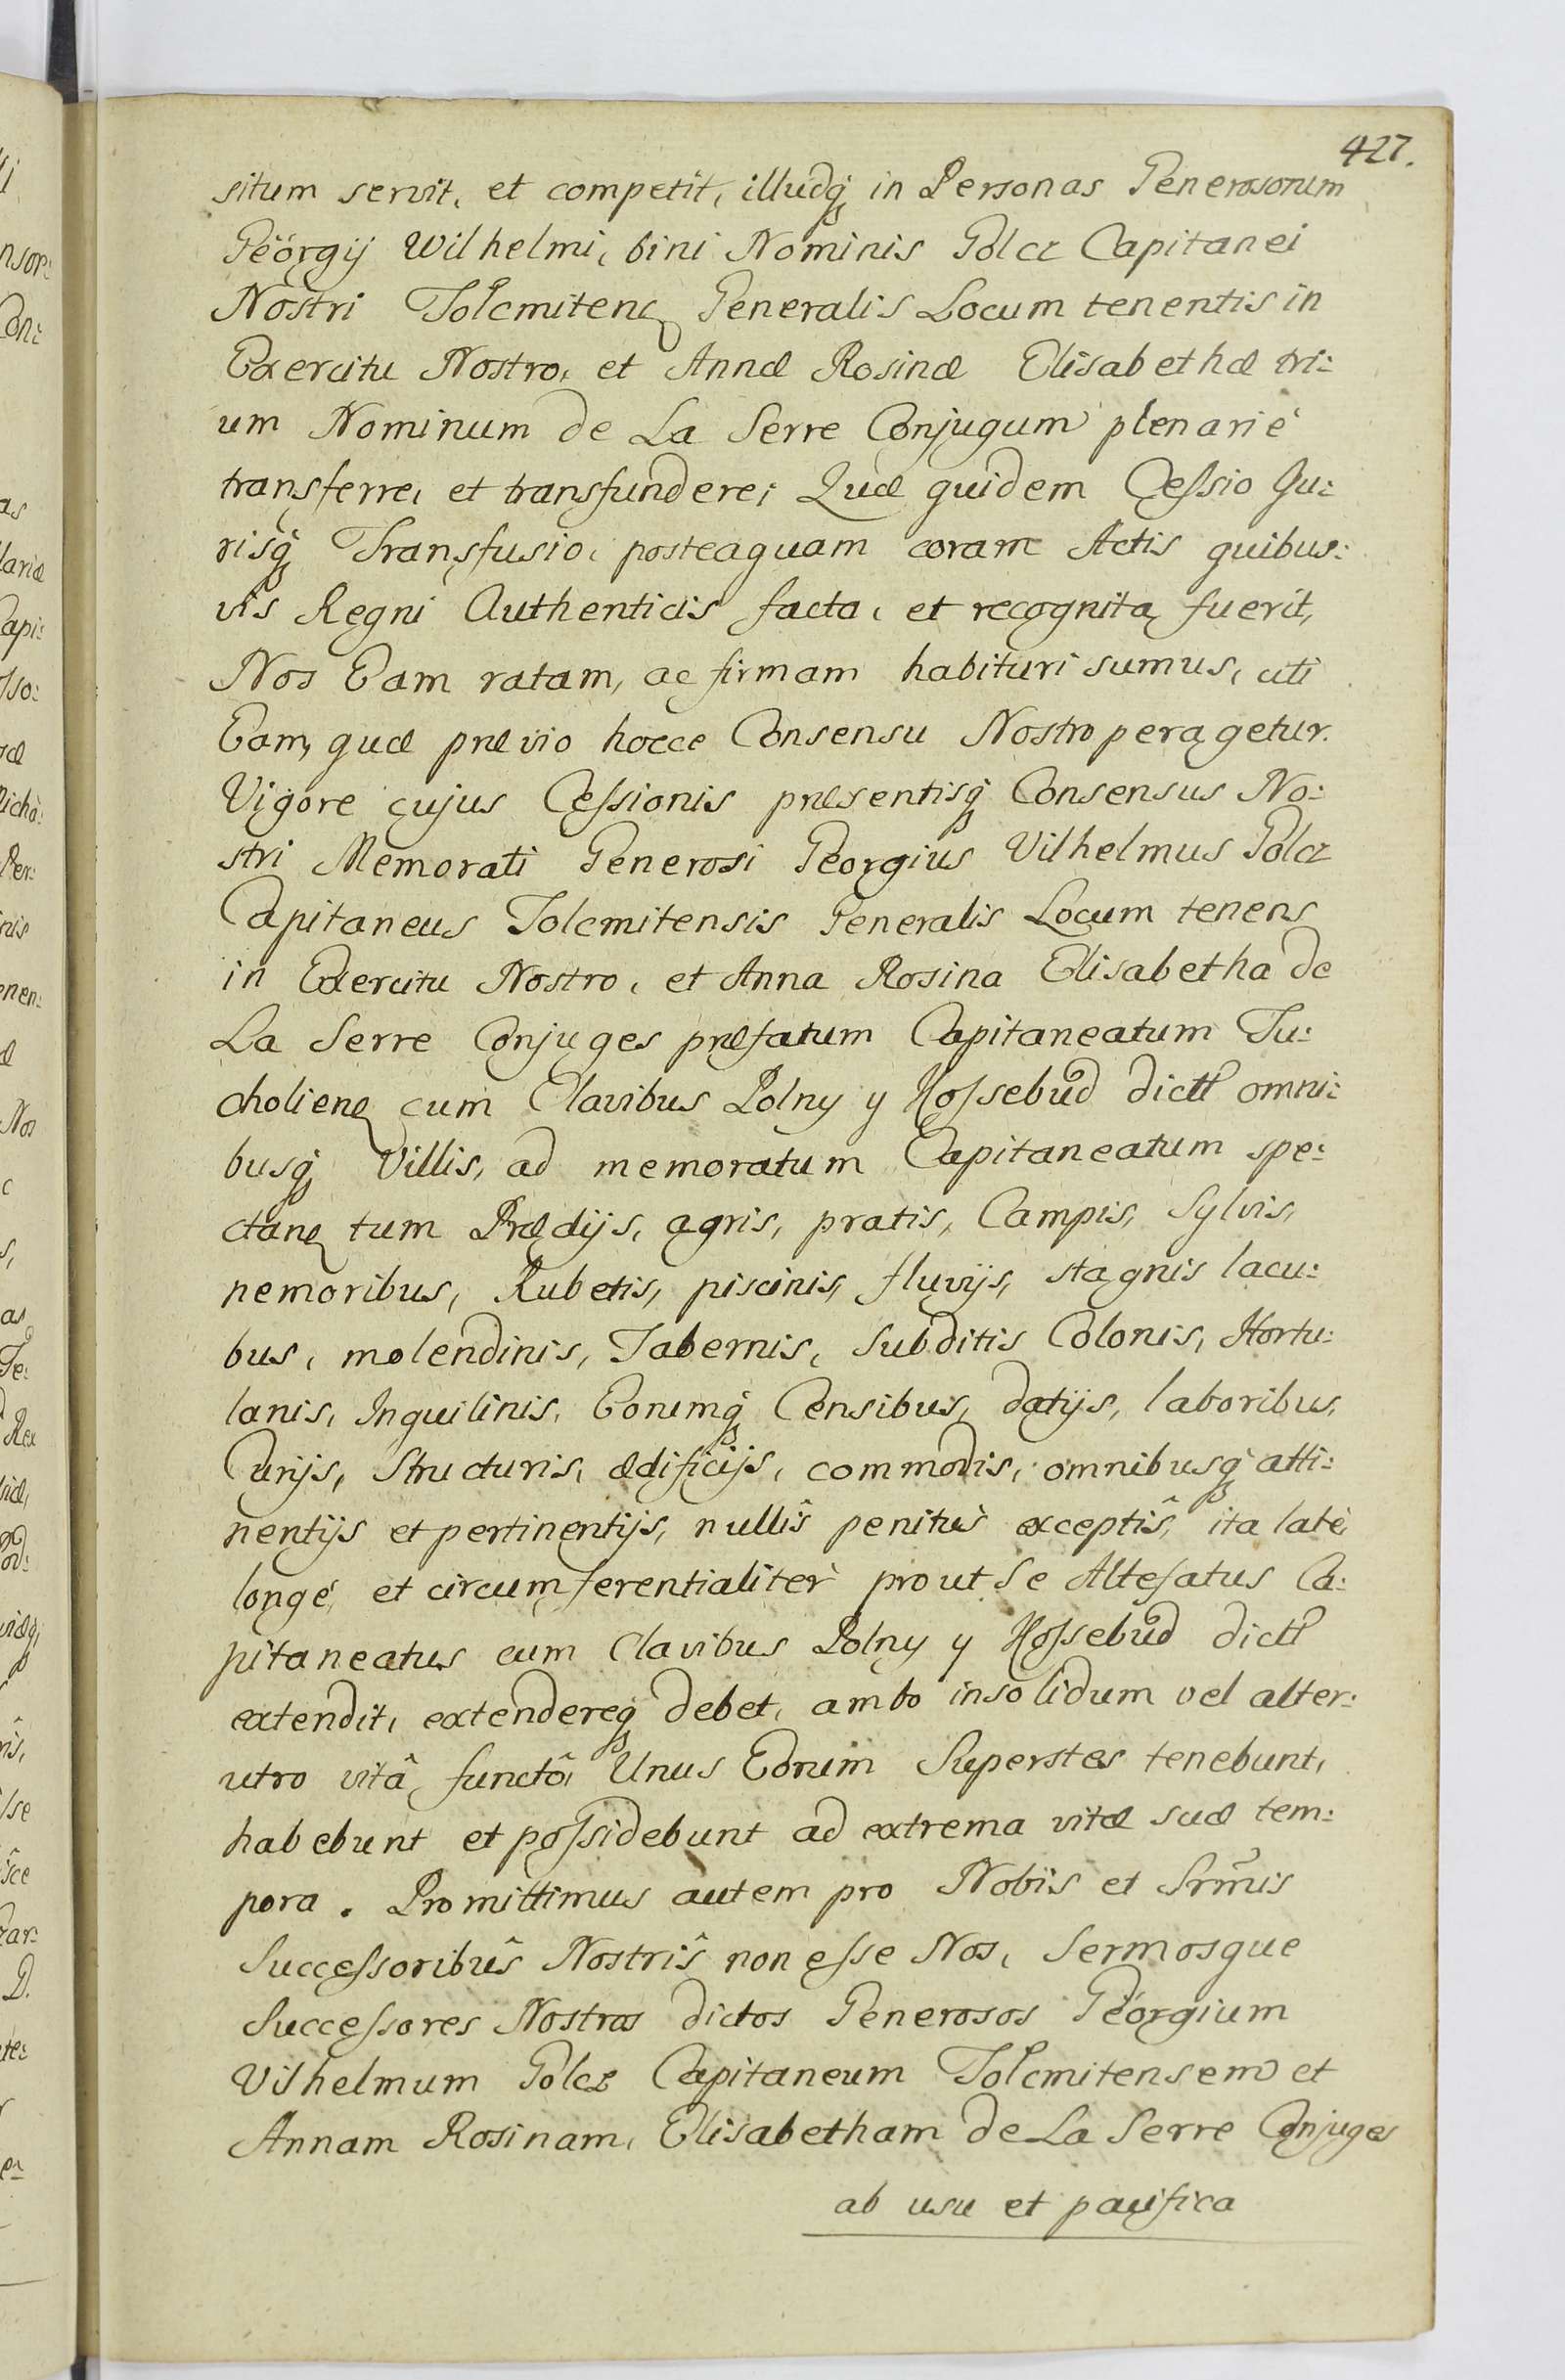 427.
situm servit, et competit, illudq́ in Personas Generosorum
Géorgij Wilhelmi, bini Nominis Golcz Capitanei
Nostri Tolcmitenq Generalis Locum tenentis in
Exercitu Nostro, et Annæ Rosinæ Elisabethæ tri:
um Nominum de La Serre Conjugum plenariè
transferre, et transfundere; Quæ quidem Cessio Ju:
risq́ Transfusio, posteaquam coram Actis quibus:
vis Regni Authenticis facta, et recognita fuerit,
Nos Eam ratam, ac firmam habituri sumus, uti
Eam, quæ prævio hocce Consensu Nostro peragetur.
Vigore cujus Cessionis præsentisq́ Consensus No:
stri Memorati Generosi Georgius Vilhelmus Golcz
Capitaneus Tolcmitensis Generalis Locum tenens
in Exercitu Nostro, et Anna Rosina Elisabetha de
La Serre Conjuges præfatum Capitaneatum Tu:
cholienq cum Clavibus Polny y Kossebůd dictt omni:
busq́ Villis, ad memoratum Capitaneatum spe:
ctanq tum Prædijs, agris, pratis, Campis, Sylvis,
nemoribus, Rubetis, piscinis, fluvijs, stagnis lacu:
bus, molendinis, Tabernis, Subditis Colonis, Hortu:
lanis, Inquilinis, Eorumq́ Censibus, datijs, laboribus,
Curijs, Structuris, ædificijs, commodis, omnibusq́ atti:
nentijs et pertinentijs, nullîs penitùs exceptîs, ita latè,
longé, et circumferentialitèr prout se Altefatus Ca:
pitaneatus cum Clavibus Polny y Kossebůd dictt
extendit, extendereq́ debet, ambo insolidum vel alter:
utro vitâ functô, Unus Eorum Superstes tenebunt,
habebunt et possidebunt ad extrema vitæ suæ tem:
pora. Promittimus autem pro Nobîs et Srmis
Successoribûs Nostrîs non esse Nos, Sermosque
Successores Nostros dictos Generosos Géorgium
Vilhelmum Golcz Capitaneum Tolcmitensem et
Annam Rosinam, Elisabetham de La Serre Conjuges
ab usu et pacifica